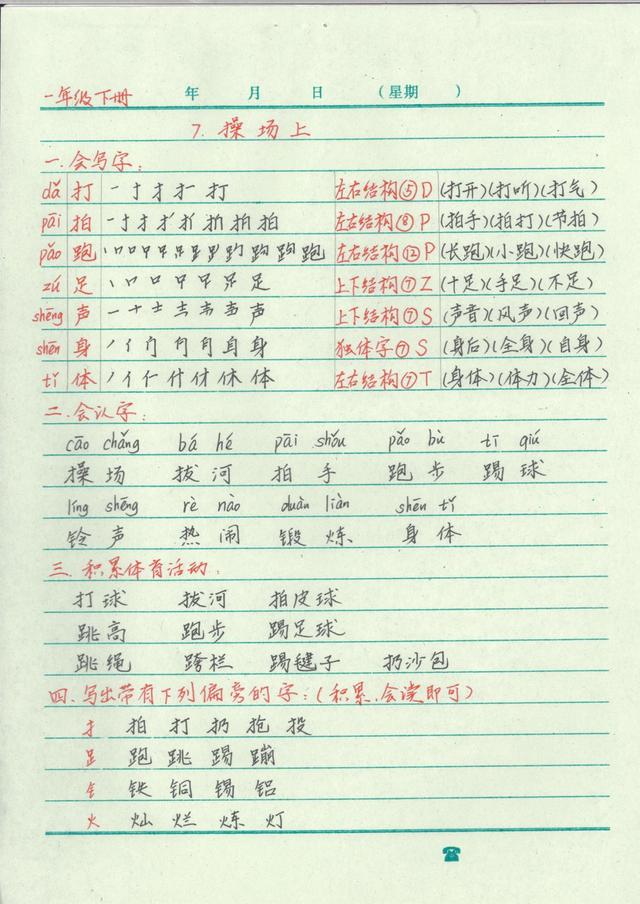 一年级下册 年 月 日 (星期 )
7. 操场上
一.会写字:
dǎ 打 一 十 扌 扌一 打 左右结构⑤D (打开)(打听)(打气)
pāi 拍 拍 拍 左右结构⑧P (拍手)(拍打)(节拍)
pǎo 跑 丶 口 口 跑 左右结构⑫P (长跑)(小跑)(快跑)
zú 足 丶 口 口 足 上下结构⑦Z (十足)(手足)(不足)
shēng 声 一 十 士 声 上下结构⑦S (声音)(风声)(回声)
shēn 身 丿 亻 身 独体字⑦S (身后)(全身)(自身)
tǐ 体 丿 亻 仁 什 休 体 左右结构⑦T (身体)(体力)(全体)
二.会认字:
cāo chǎng bá hé pāi shǒu pǎo bù tī qiú
操场 拔河 拍手 跑步 踢球
líng shēng rè nào duàn liàn shēn tǐ
铃声 热闹 锻炼 身体
三.积累体育活动:
打球 拔河 拍皮球
跳高 跑步 踢足球
跳绳 跨栏 踢毽子 扔沙包
四.写出带有下列偏旁的字:(积累,会读即可)
扌 拍 打 扔 抢 投
𧾷 跑 跳 踢 蹦
钅 铁 铜 锡 铝
火 灿 烂 炼 灯